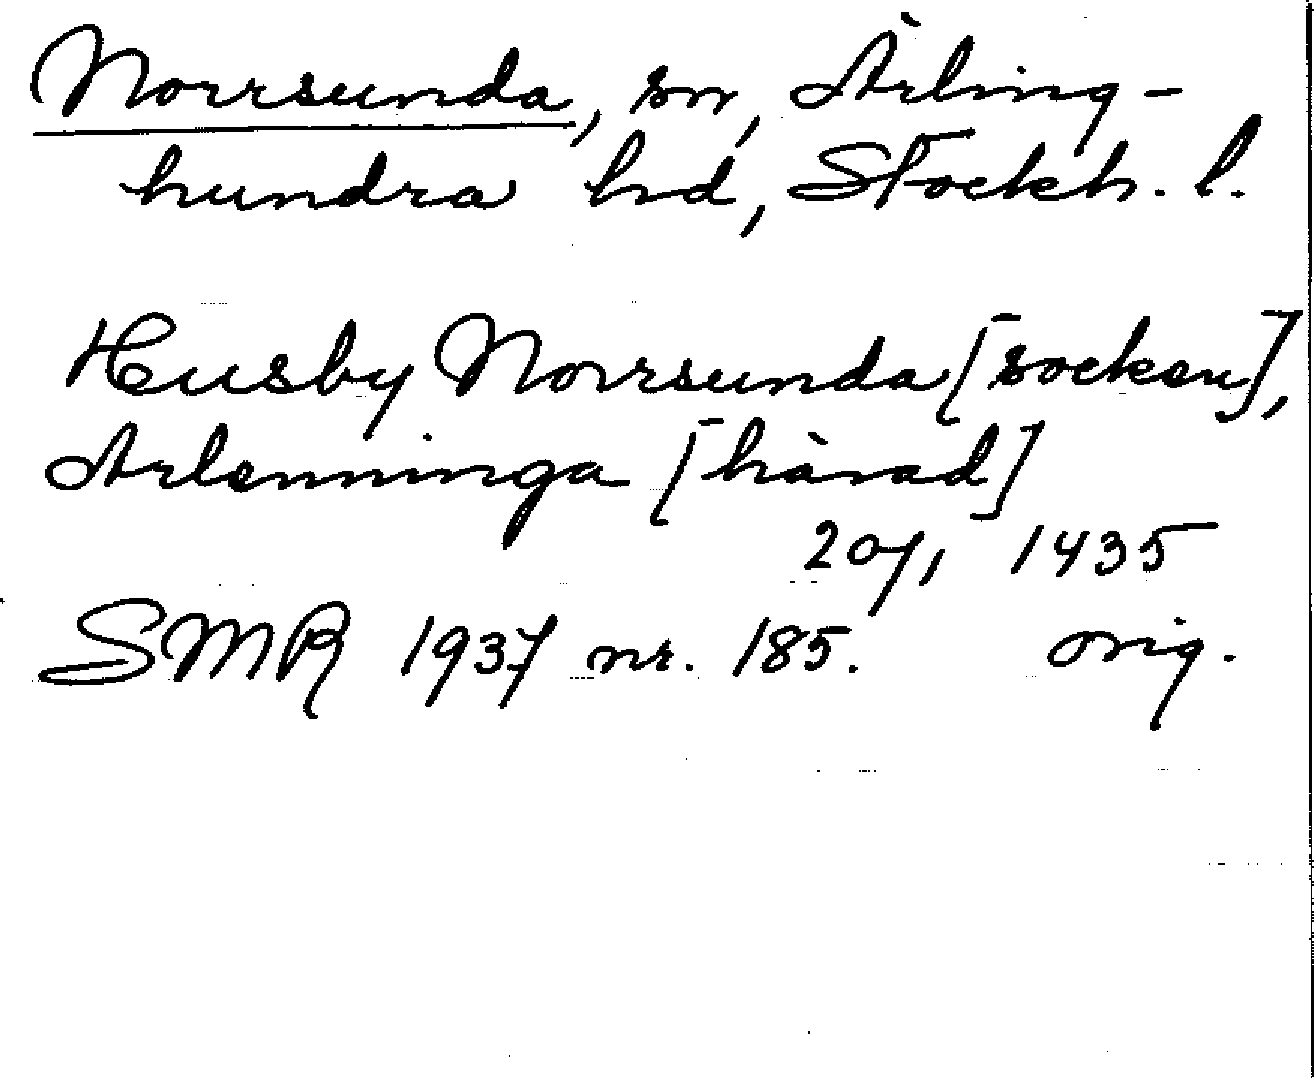 Norrsunda, sn, Ärling-
hundra hd, Stockh. l.
Husby Norrsunda [socken],
Arlenninga [härad]
20/1 1435
SMR 1937 nr. 185. orig.